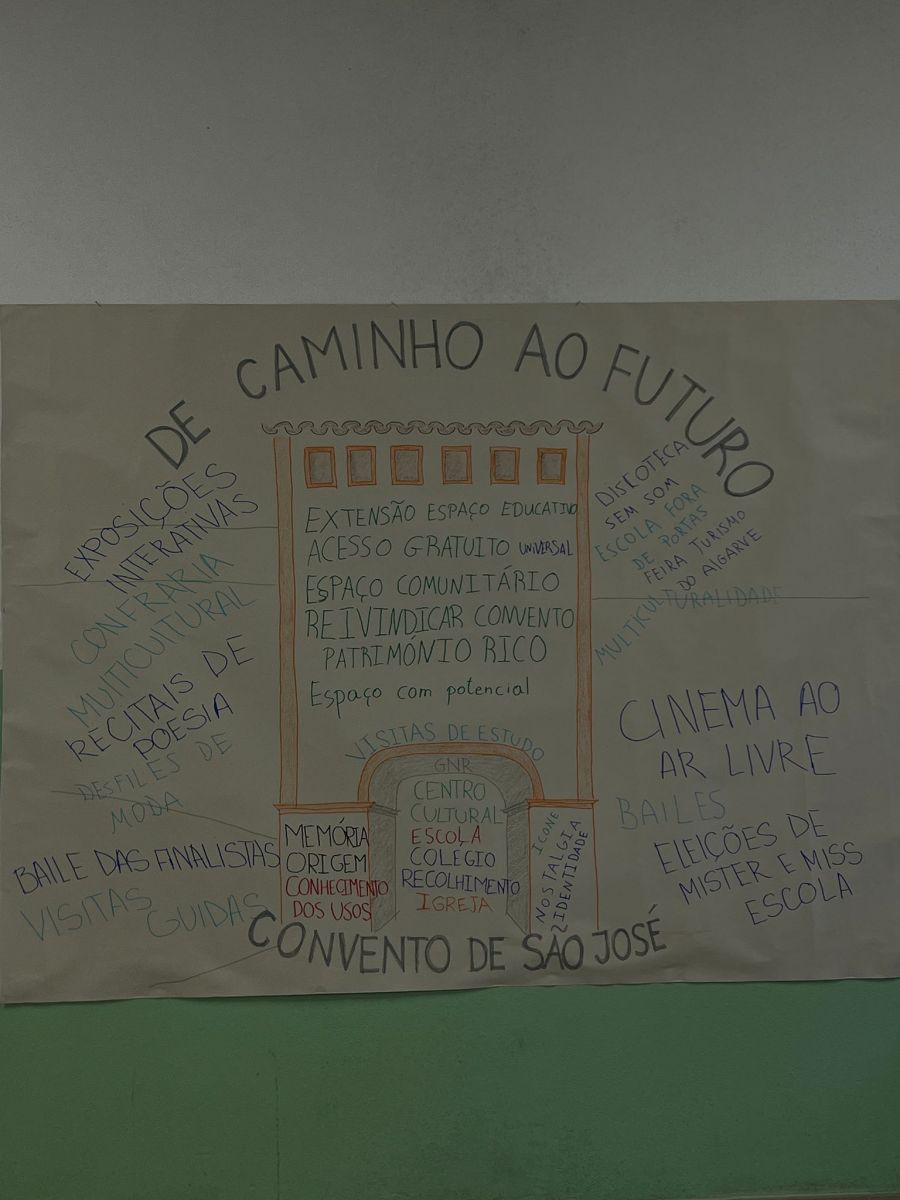 DE CAMINHO AO FUTURO
EXPOSIÇÕES
INTERATIVAS
CONFRARIA
MULTICULTURAL
RECITAIS DE
POESIA
DESFILES DE
MODA
BAILE DAS FINALISTAS
VISITAS GUIDAS
EXTENSÃO ESPAÇO EDUCATIVO
ACESSO GRATUITO UNIVERSAL
ESPAÇO COMUNITÁRIO
REIVINDICAR CONVENTO
PATRIMÓNIO RICO
Espaço com potencial
VISITAS DE ESTUDO
GNR
CENTRO
CULTURAL
ESCOLA
COLEGIO
RECOLHIMENTO
IGREJA
MEMÓRIA
ORIGEM
CONHECIMENTO
DOS USOS
ICONE
NOSTALGIA
IDENTIDADE
DISCOTECA
SEM SOM
ESCOLA FORA
DE PORTAS
FEIRA TURISMO
DO ALGARVE
MULTICULTURALIDADE
CINEMA AO
AR LIVRE
BAILES
ELEIÇÕES DE
MISTER E MISS
ESCOLA
CONVENTO DE SÃO JOSÉ